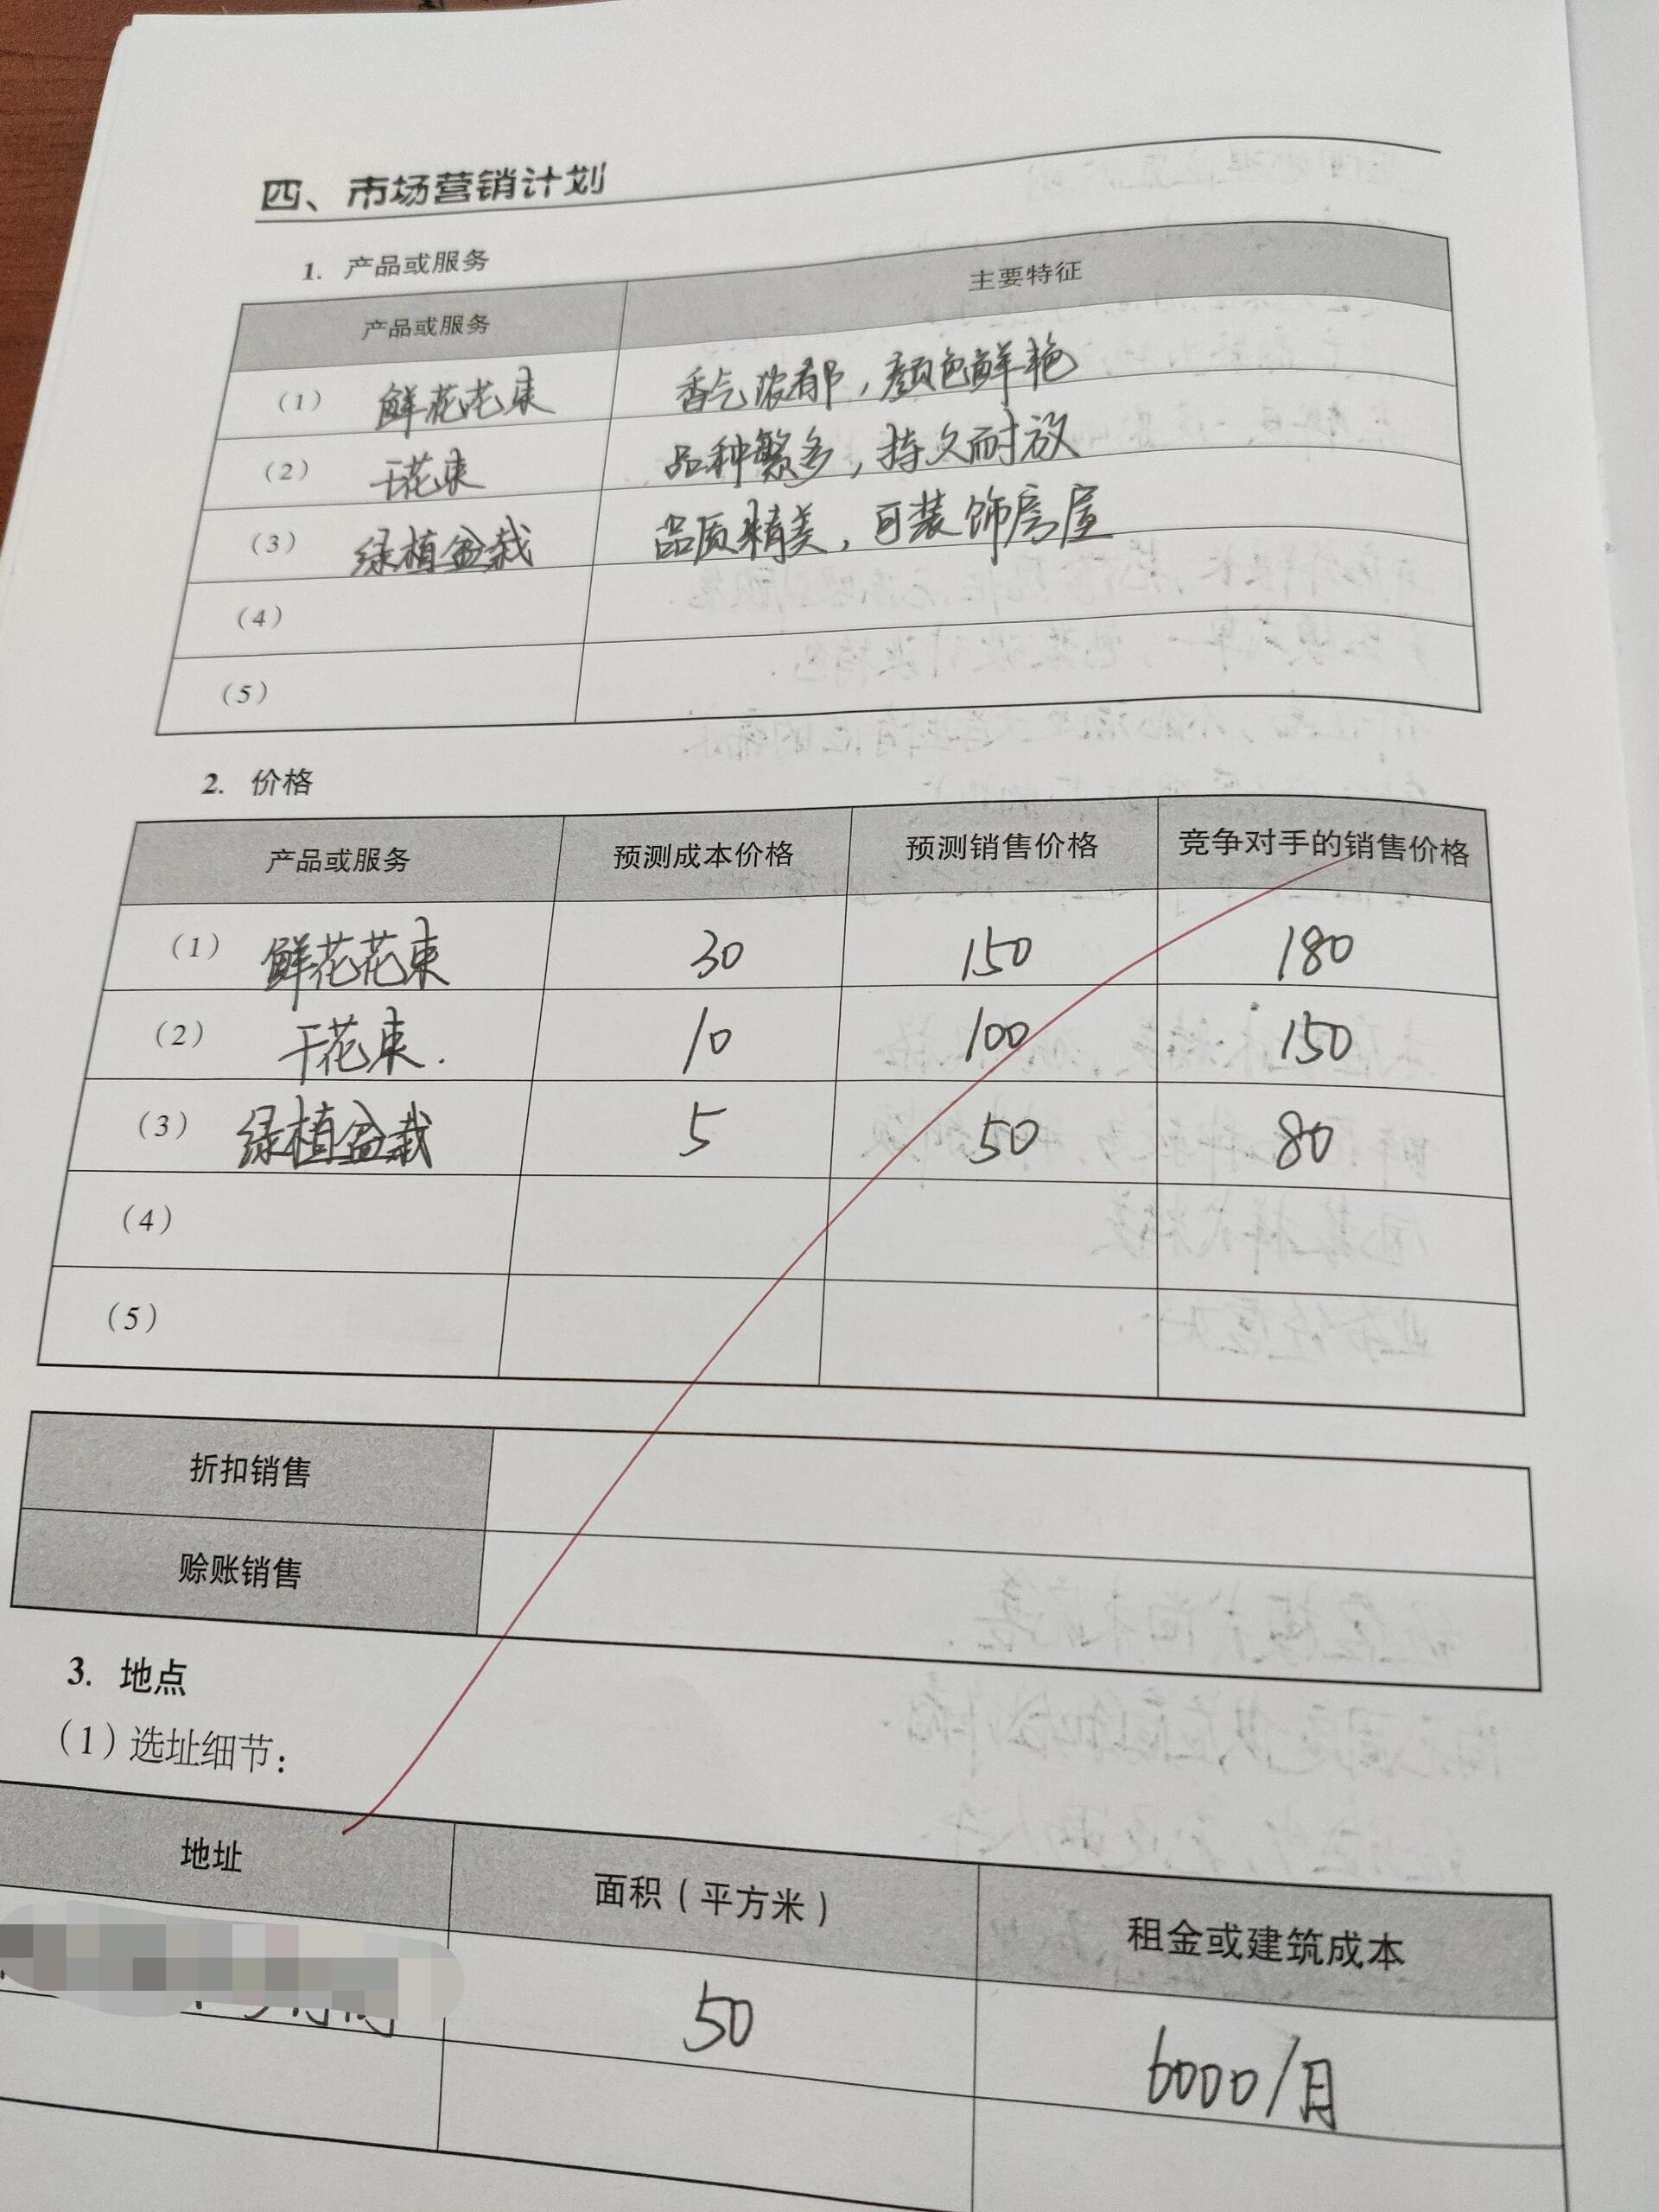 四、市场营销计划
1. 产品或服务
产品或服务 主要特征
（1） 鲜花花束 香气浓郁，颜色鲜艳
（2） 干花束 品种繁多，持久耐放
（3） 绿植盆栽 品质精美，可装饰房屋
（4）
（5）
2. 价格
产品或服务 预测成本价格 预测销售价格 竞争对手的销售价格
（1） 鲜花花束 30 150 180
（2） 干花束. 10 100 150
（3） 绿植盆栽 5 50 80
（4）
（5）
折扣销售
赊账销售
3. 地点
（1）选址细节：
地址 面积（平方米） 租金或建筑成本
50 6000/月